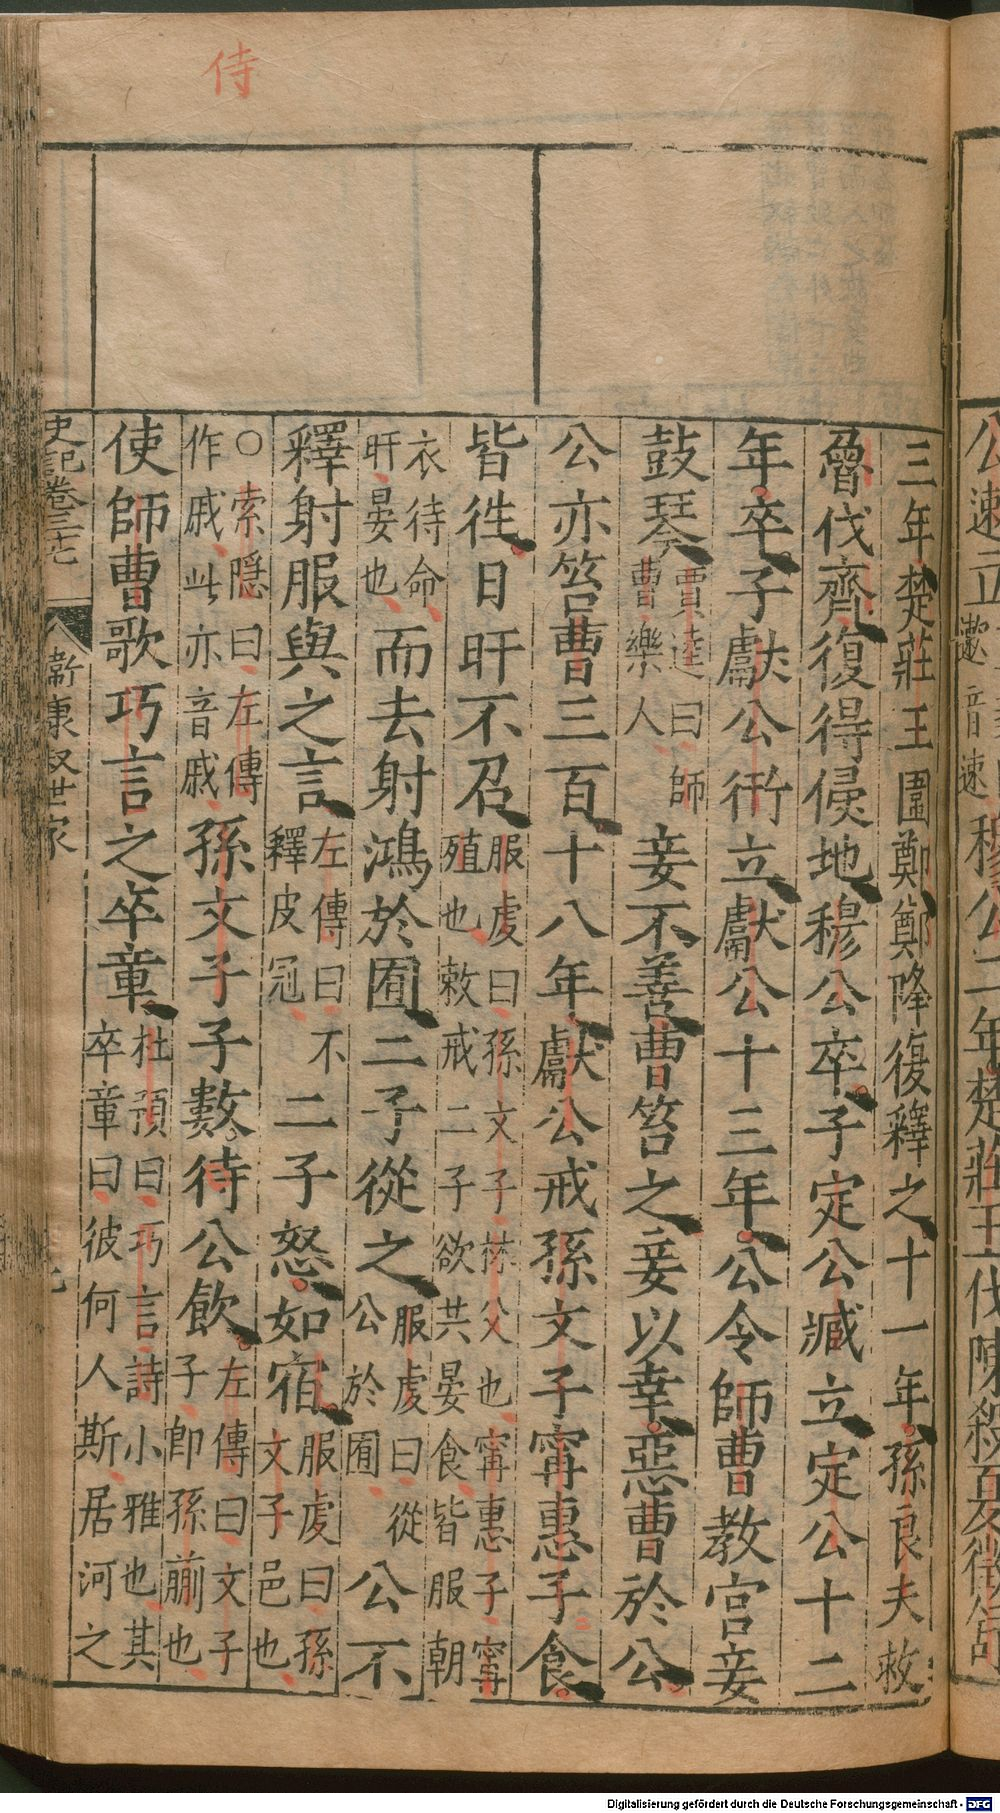 侍
三年楚莊王圍鄭鄭降復釋之十一年孫良夫救
魯伐齊復得侵地穆公卒子定公臧立定公十二
年卒子獻公衎立獻公十三年公令師曹教宮妾
鼓琴賈逵曰師曹樂人妾不善曹笞之妾以幸惡曹於公
公亦笞曹三百十八年獻公戒孫文子甯惠子食
皆徃日旰不召服虔曰孫文子林父也甯惠子甯殖也敕戒二子欲共晏食皆服朝
衣待命旰晏也而去射鴻於囿二子從之服虔曰從公於囿公不
釋射服與之言左傳曰不釋皮冠二子怒如宿服虔曰孫文子邑也
○索隱曰左傳作戚此亦音戚孫文子子數待公飲左傳曰文子子即孫蒯也
使師曹歌巧言之卒章杜預曰巧言詩小雅也其卒章曰彼何人斯居河之
史記卷三十七
衛康叔世家
九
公速立遬音速穆公二年楚莊王伐陳殺夏徵舒
Digitalisierung gefördert durch die Deutsche Forschungsgemeinschaft - DFG